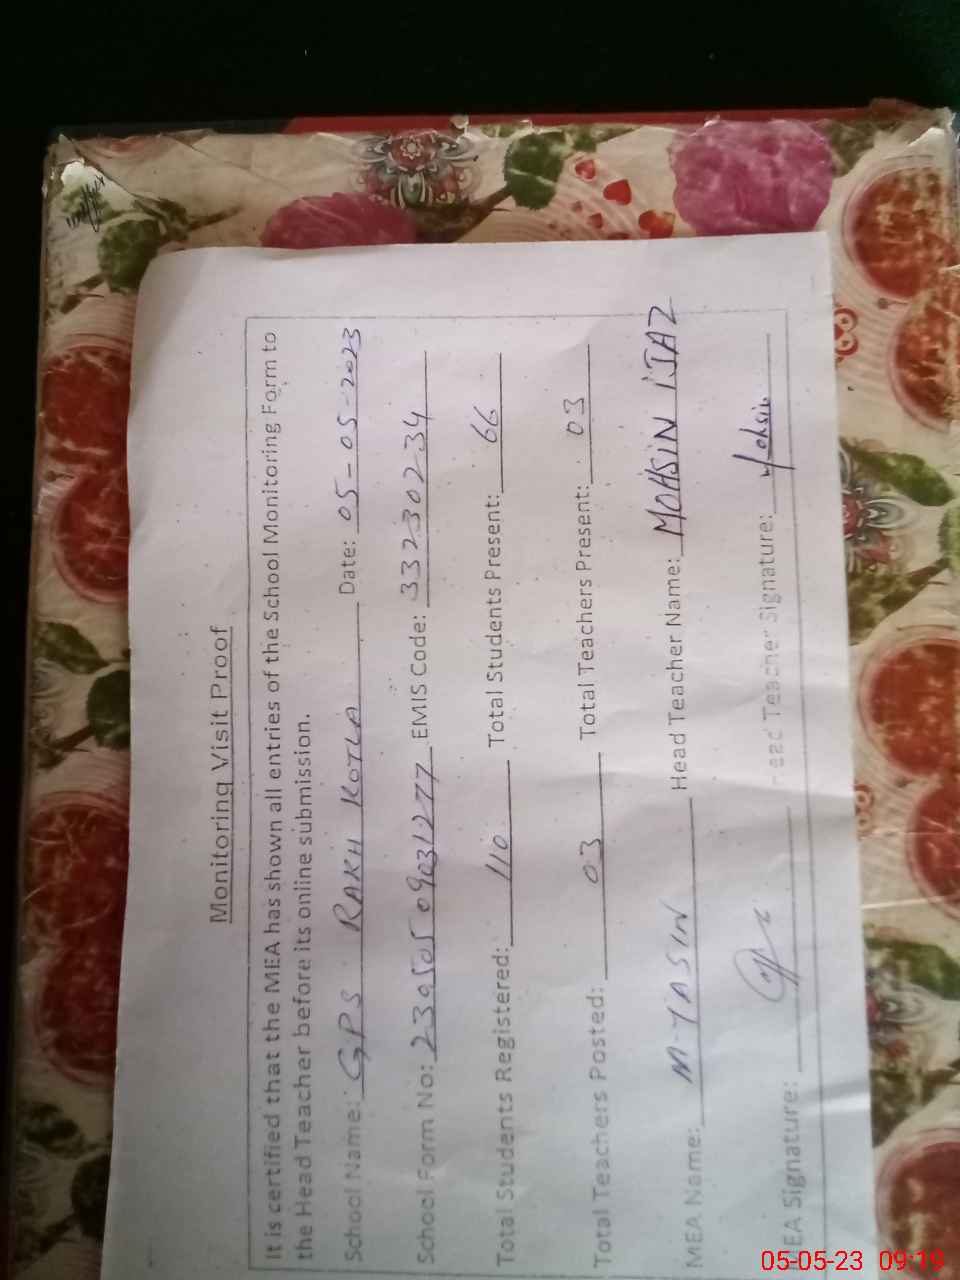 Monitoring Visit Proof
It is certified that the MEA has shown all entries of the School Monitoring Form to
the Head Teacher before its online submission.
School Name: GPS RAKH KOTLA Date: 05-05-2023
School Form No: 23950509031277 EMIS Code: 332330234
Total Students Registered: 110 Total Students Present: 66
Total Teachers Posted: 03 Total Teachers Present: 03
MEA Name: M-YASIN Head Teacher Name: MOHSIN IJAZ
MEA Signature: Head Teacher Signature: Mohsin
05-05-23 09:19